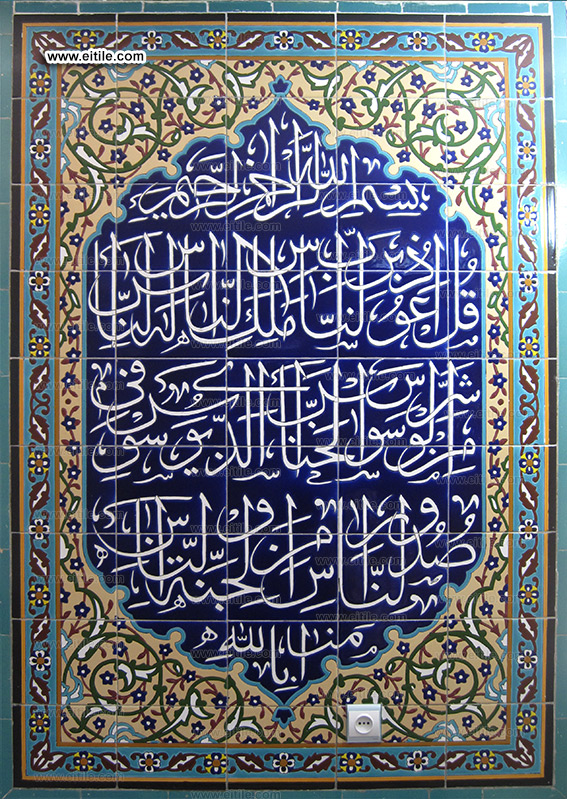 www.eitile.com
بسم الله الرحمن الرحيم
قل اعوذ برب الناس ملك الناس اله الناس
من شر الوسواس الخناس الذي يوسوس في
صدور الناس من الجنة و الناس
امنا بالله